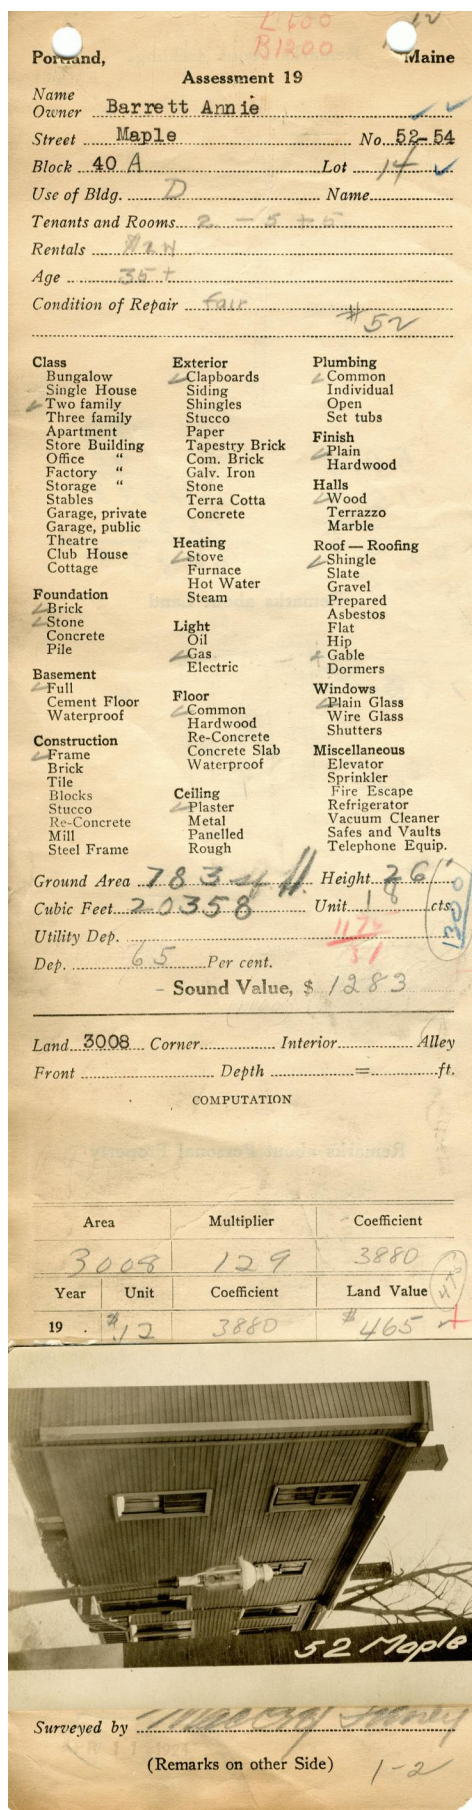 L 600
B 1200
Portland, Maine
Assessment 19
Name
Owner Barrett Annie
Street Maple No. 52-54
Block 40 A Lot 14
Use of Bldg. D Name
Tenants and Rooms 2 - 5 + 5
Rentals
Age 35+
Condition of Repair fair
#52
Class
Bungalow
Single House
Two family
Three family
Apartment
Store Building
Office "
Factory "
Storage "
Stables
Garage, private
Garage, public
Theatre
Club House
Cottage
Foundation
Brick
Stone
Concrete
Pile
Basement
Full
Cement Floor
Waterproof
Construction
Frame
Brick
Tile
Blocks
Stucco
Re-Concrete
Mill
Steel Frame
Exterior
Clapboards
Siding
Shingles
Stucco
Paper
Tapestry Brick
Com. Brick
Galv. Iron
Stone
Terra Cotta
Concrete
Heating
Stove
Furnace
Hot Water
Steam
Light
Oil
Gas
Electric
Floor
Common
Hardwood
Re-Concrete
Concrete Slab
Waterproof
Ceiling
Plaster
Metal
Panelled
Rough
Plumbing
Common
Individual
Open
Set tubs
Finish
Plain
Hardwood
Halls
Wood
Terrazzo
Marble
Roof — Roofing
Shingle
Slate
Gravel
Prepared
Asbestos
Flat
Hip
Gable
Dormers
Windows
Plain Glass
Wire Glass
Shutters
Miscellaneous
Elevator
Sprinkler
Fire Escape
Refrigerator
Vacuum Cleaner
Safes and Vaults
Telephone Equip.
Ground Area 783 sq ft. Height 26'
Cubic Feet 20358 Unit 18 cts.
1300
Utility Dep.
Dep. 65 Per cent.
Sound Value, $ 1283
Land 3008 Corner Interior Alley
Front Depth = ft.
COMPUTATION
Area Multiplier Coefficient
3008 129 3880
Year Unit Coefficient Land Value
19 . $.12 3880 $465
52 Maple
Surveyed by
(Remarks on other Side)
1-2